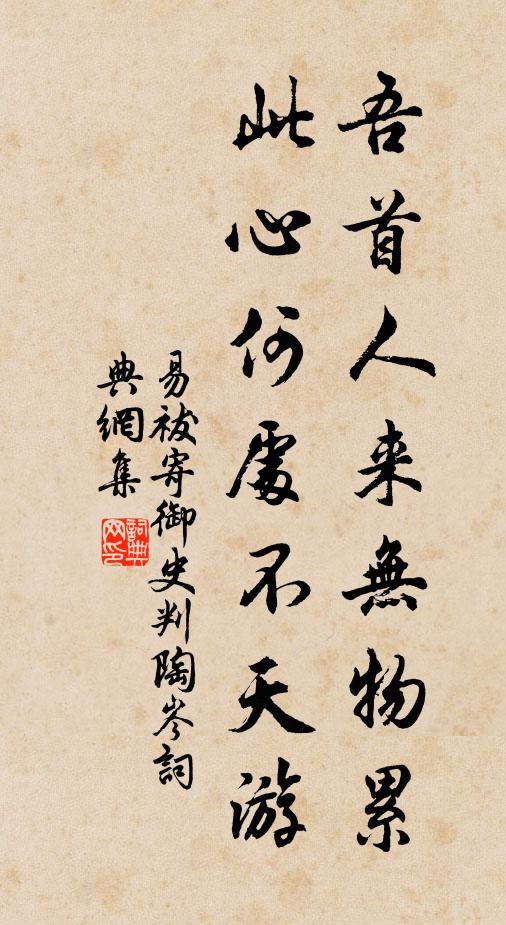 吾首人来無物累
此心何處不天游
易祓寄御史判陶岑詞
典網集
詞典网印